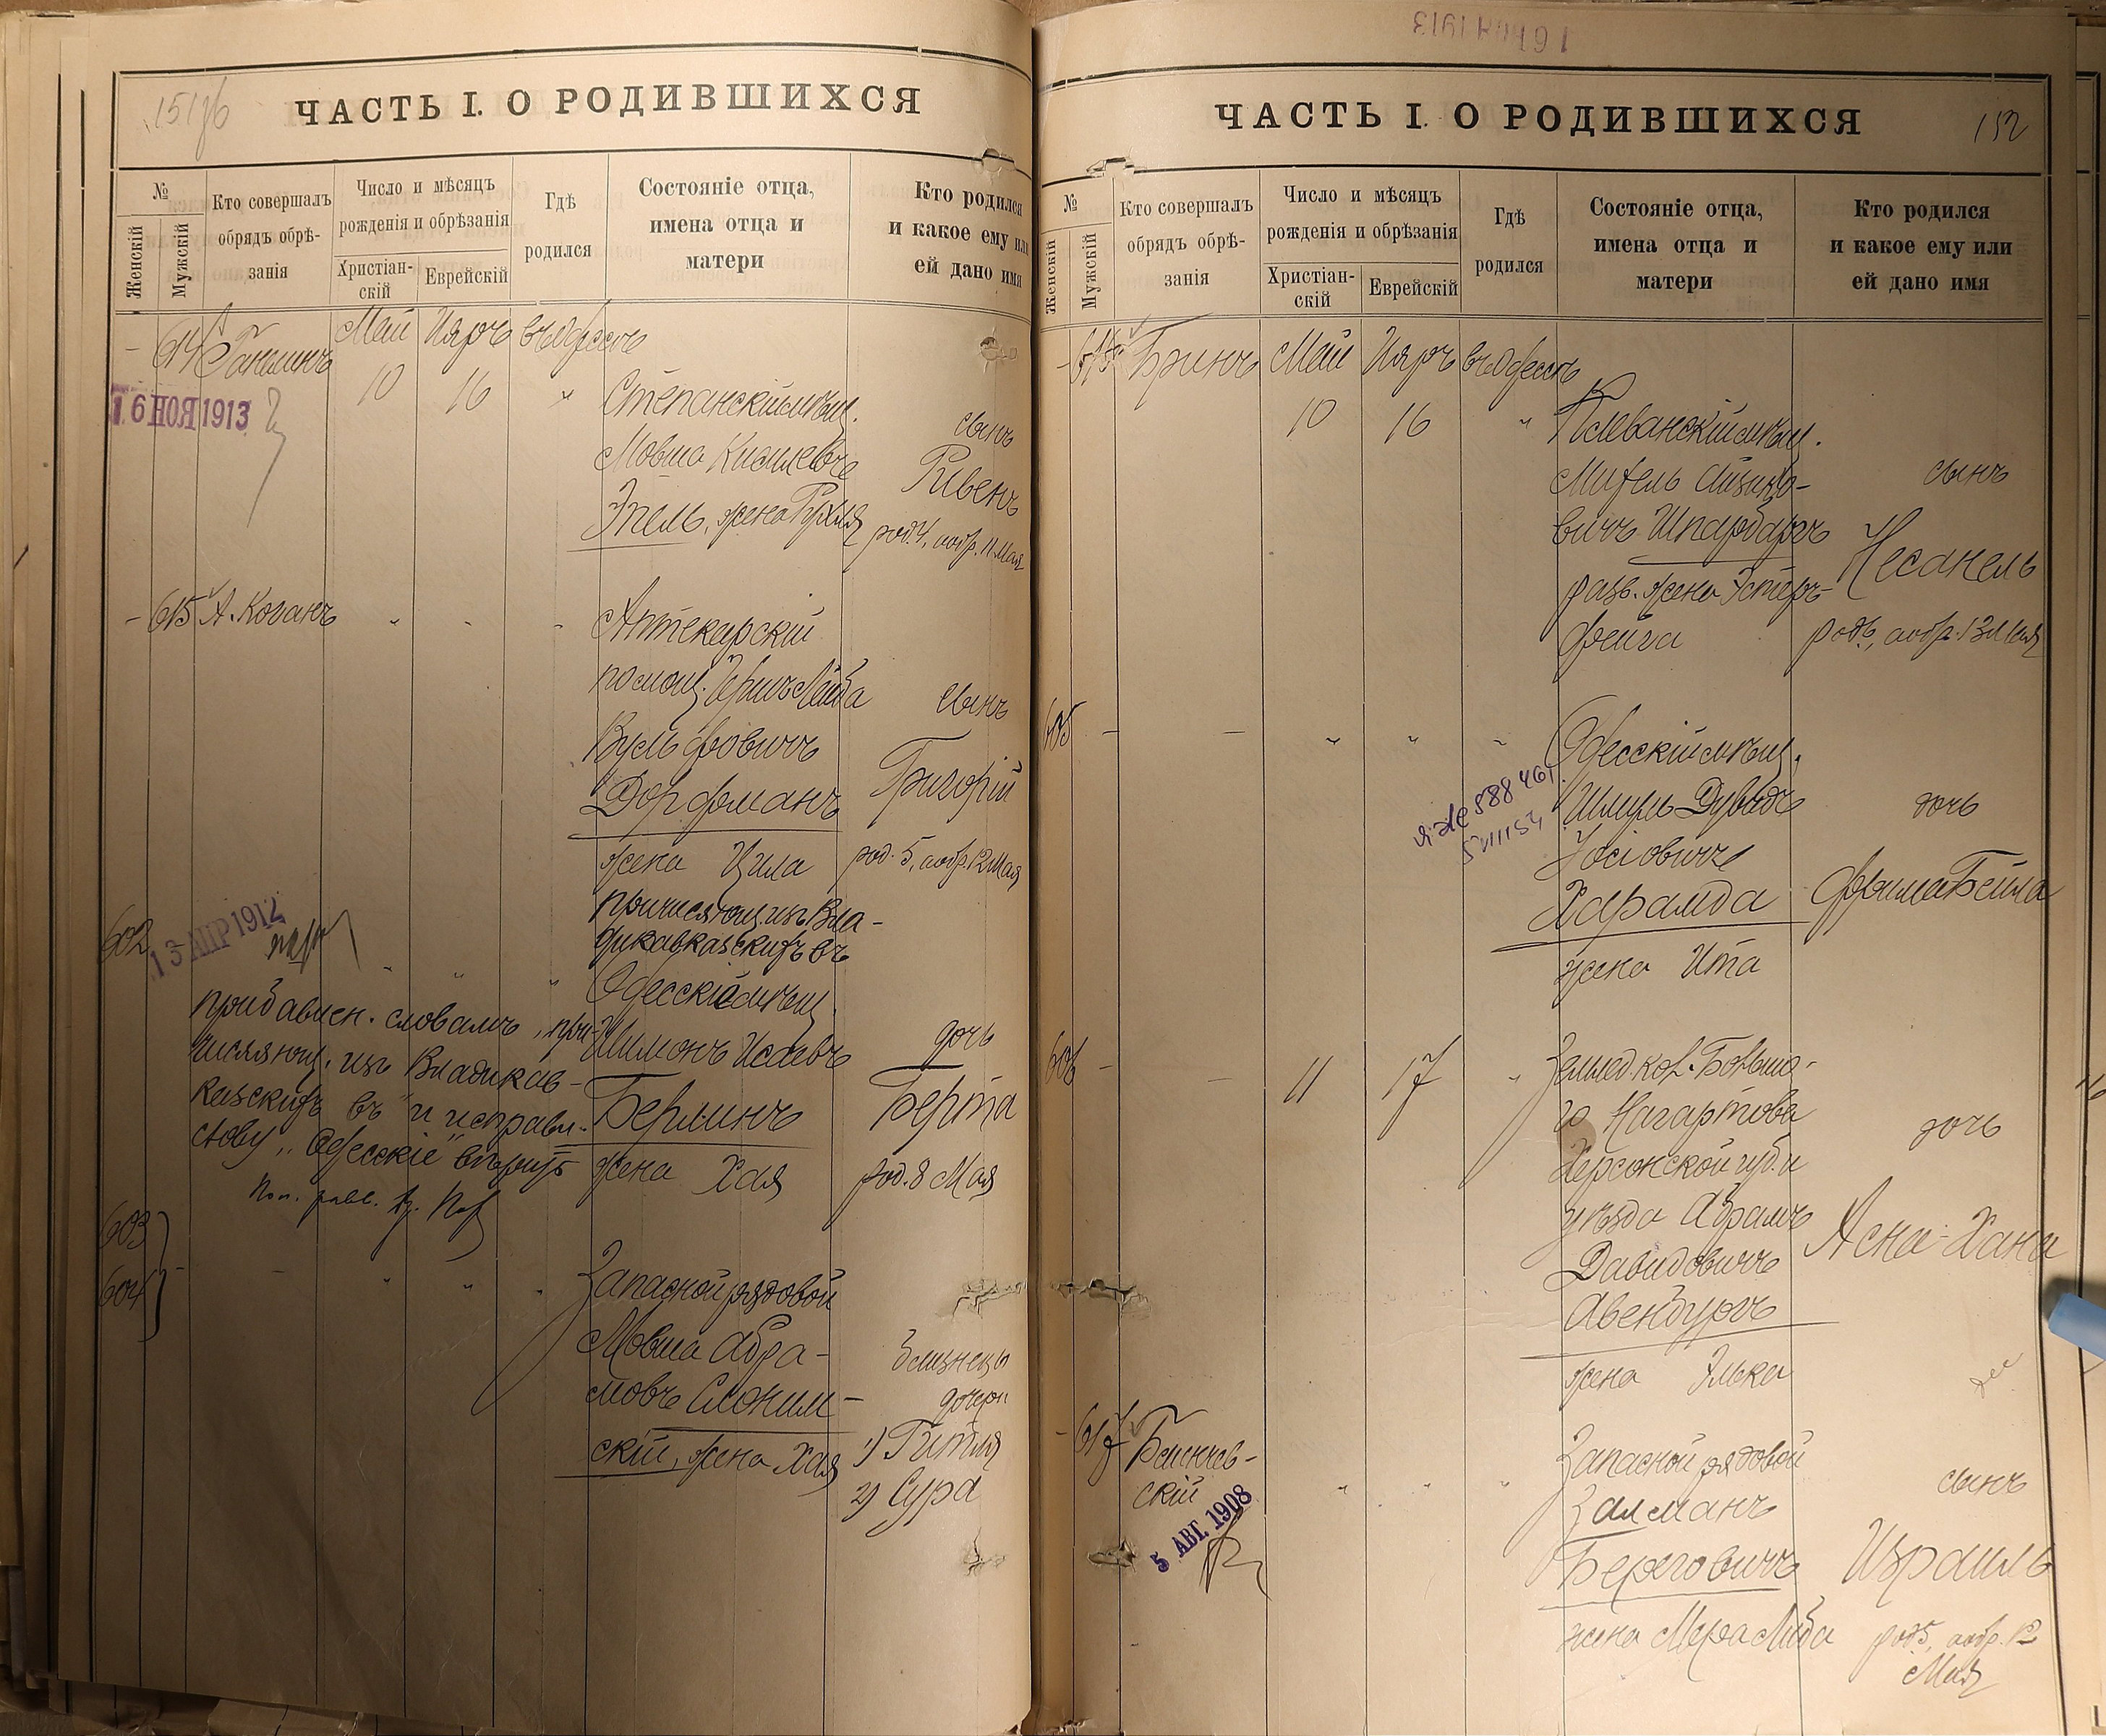 151об
ЧАСТЬ I. О РОДИВШИХСЯ
№
Женскій
Мужскій
Кто совершалъ
обрядъ обрѣ-
занія
Число и мѣсяцъ
рожденія и обрѣзанія
Христіан-
скій
Еврейскій
Гдѣ
родился
Состояніе отца,
имена отца и
матери
Кто родился
и какое ему или
ей дано имя
- 614 Май Іяръ въ Одессѣ
10 16 "
16 НОЯ 1913
Степанскій мѣщ.
Мовша Кисилевъ
Эпель, жена Рухля
сынъ
Рувенъ
род. 4, обр. 11 Мая
- 615 А. Коганъ " " "
Аптекарскій
помощ. Гершъ Лейба
Вульфовичъ
Дорфманъ
жена Цила
сынъ
Григорій
род. 5, обр. 12 Мая
602
13 АПР 1912
" " "
причисляющ. изъ Вла-
дикавказскихъ въ
Одесскіе мѣщ.
Шимонъ Исаевъ
Берлинъ
жена Хая
дочь
Берта
род. 8 Мая
прибавлен. словамъ "при-
числяющ. изъ Владикав-
казскихъ въ" и исправл.
слову "Одесскіе" вѣрить
603
604
- " " "
Запасной рядовой
Мовша Абра-
мовъ Слоним-
скій, жена Хая
близнецы
дочери
1) Гитля
2) Сура
16 НОЯ 1913
ЧАСТЬ I. О РОДИВШИХСЯ
152
№
Женскій
Мужскій
Кто совершалъ
обрядъ обрѣ-
занія
Число и мѣсяцъ
рожденія и обрѣзанія
Христіан-
скій
Еврейскій
Гдѣ
родился
Состояніе отца,
имена отца и
матери
Кто родился
и какое ему или
ей дано имя
- Бринъ Май Іяръ въ Одессѣ
10 16 "
Клеванскій мѣщ.
Михель Айзико-
вичъ Шпарбергъ
разв. жена Эстеръ-
Фейга
сынъ
Несанель
род. 6, обр. 13 Мая
605 - - " " "
Одесскій мѣщ.
Шмуль Дувидъ
Іосіовичъ
Харамда
жена Ита
дочь
Фрима Бейла
606 - - 11 17 "
Землед. кол. Большо-
го Нагартова
Херсонской губ. и
уѣзда Абрамъ
Давидовичъ
Авенбургъ
жена Элька
дочь
Асна-Хана
- 617
скій
5 АВГ. 1908
" " "
Запасной рядовой
Залманъ
Береговичъ
жена Мера Либа
сынъ
Израиль
род. 5, обр. 12
Мая